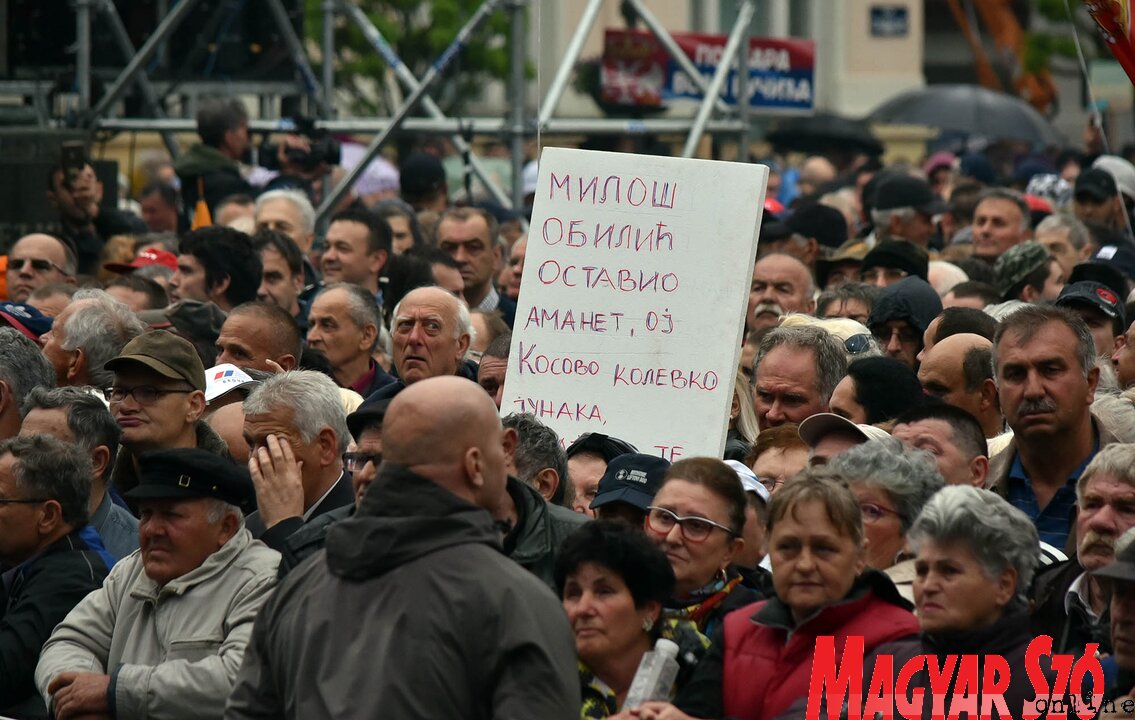 ПОДРШКА
ВОЈВОДИ ВУЧИЋА
МИЛОШ
ОБИЛИЋ
ОСТАВИО
АМАНЕТ, ОЈ
КОСОВО КОЛЕВКО
ЈУНАКА,
ТЕ
MAGYAR SZÓ
online